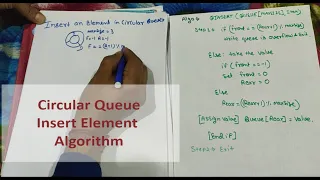 Insert an Element in Circular Queue
maxsize = 3
F=-1 R=-1
Circular Queue
Insert Element
Algorithm
QINSERT (QUEUE [MAXSIZE], Item)
Step 1 if (front == (Rear+1) % maxsize)
write queue is overflow & exit
Else: take the value
if (front == -1)
Set front = 0
Rear = 0
Else
Rear = ((Rear+1) % maxsize)
[Assign Value] Queue [Rear] = Value.
[End if]
Step 2 Exit